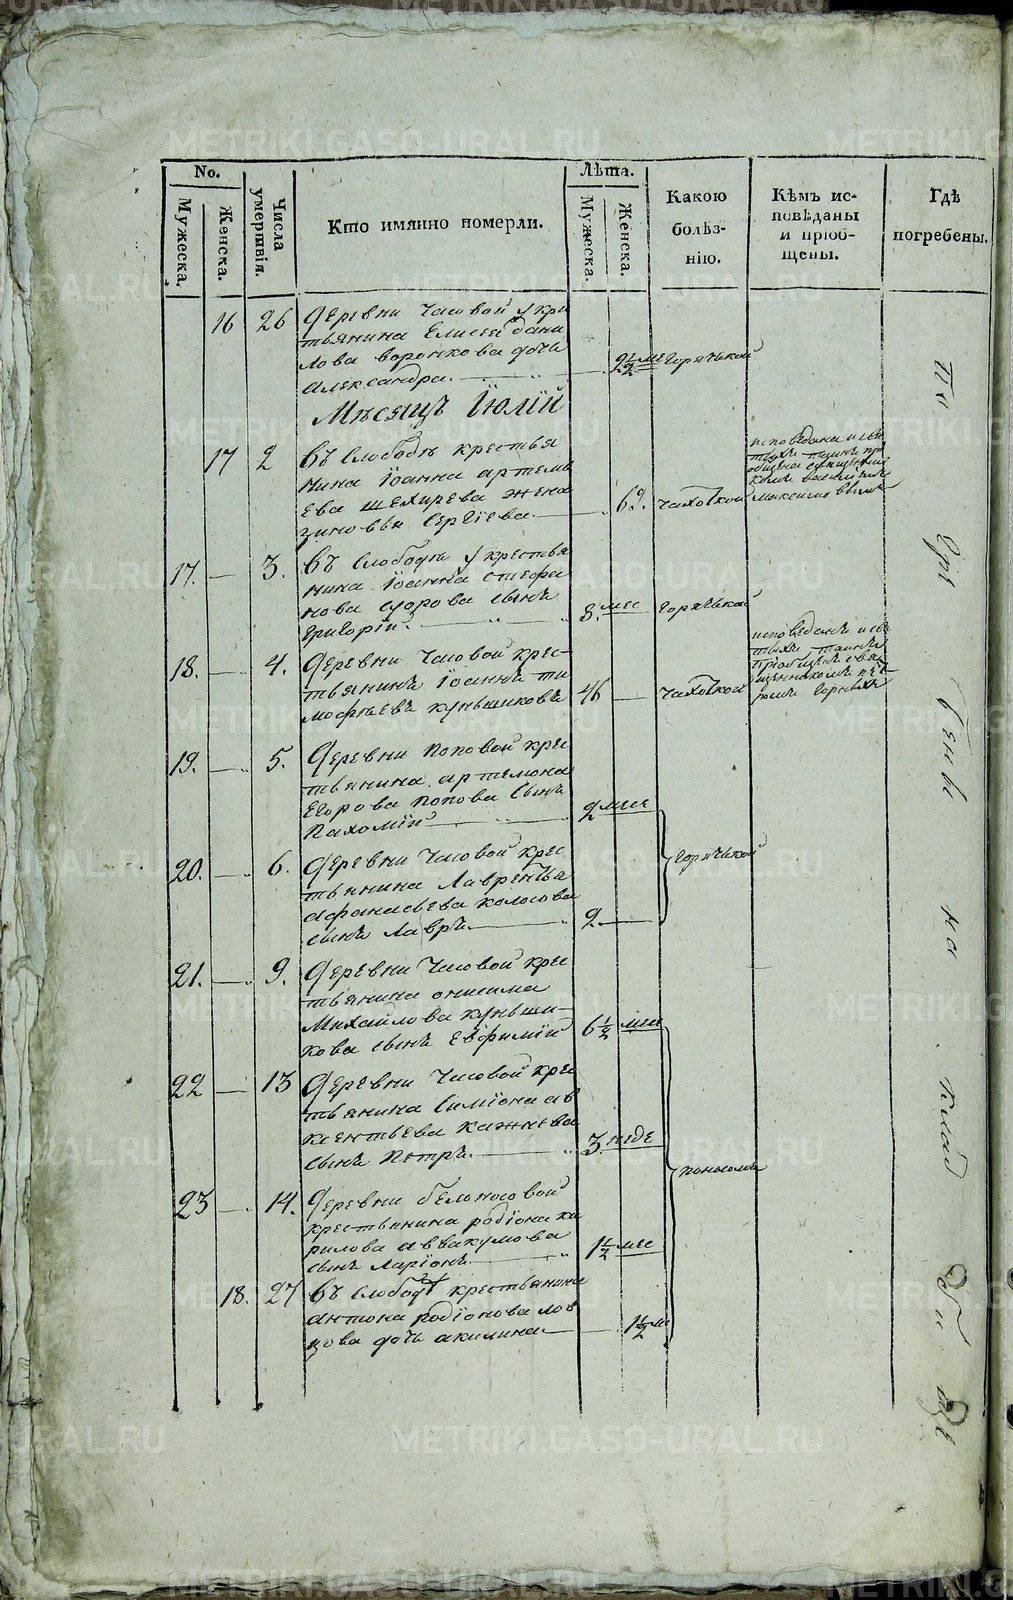 METRIKI.GASO-URAL.RU
No.
Мужеска.
Женска.
Числа умертвія.
Кто имянно померли.
Лѣта.
Мужеска.
Женска.
Какою болѣз-
нію.
Кѣмъ ис-
повѣданы
и пріоб-
щены.
Гдѣ
погребены.
16 26 Деревни Часовой у кре
стьянина Елисея Дани
лова Воронкова дочь
Александра. 2½ ме Горячькой
Мѣсяцъ Іюлій
17 2 Въ Слободѣ крестья
нина Іоанна Артемь
ева жена
Зиновья Сергіева. 62. чахоткой
исповѣдана и свя
тыхъ таинъ прі
общена священни
комъ Василіемъ
Максимовымъ
17. 3. Въ Слободѣ у крестья
нина Іоанна Стефа
нова сынъ
Григорій. 8. мес Горячькой
18. 4. Деревни Часовой крес
тьянинъ Іоаннъ Ти
мофѣевъ Куньшиковъ 46 чахоткой
исповѣданъ и свя
тыхъ таинъ
пріобщенъ свя
щенникомъ Пет
ромъ
19. 5. Деревни Поповой крес
тьянина Артемона
Егорова Попова сынъ
Пахомій 2 меся
20. 6. Деревни Часовой крес
тьянина Лаврентья
Афанасьева Колосова
сынъ Лавръ. 2. Горячькой
21. 9. Деревни Часовой крес
тьянина Онисима
Михайлова Куньши-
кова сынъ Евфимій 6½ мес
22 13 Деревни Часовой крес
тьянина Симіона Ав
ксентьева
сынъ Петръ. 3. неде
поносомъ
23 14. Деревни Белоносовой
крестьянина Родіона Ки
рилова Аввакумова
сынъ Ларіонъ. 1½ мес
18. 27 Въ Слободѣ крестьянина
Антона Родіонова Лов
цова дочь Акилина 1½ м
на